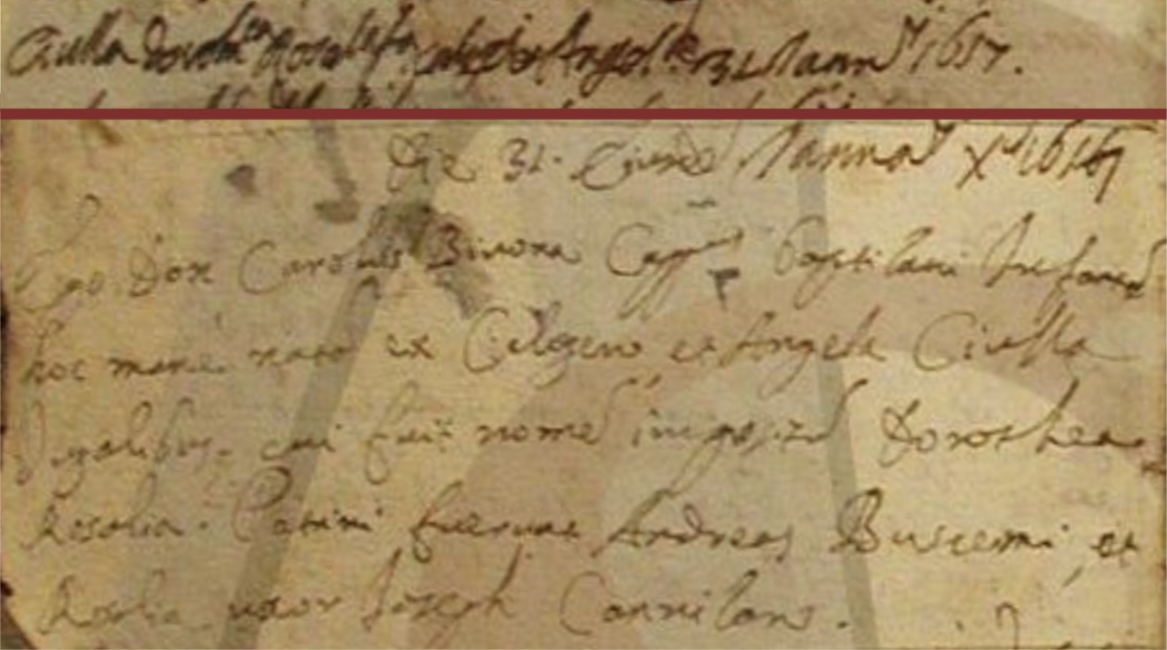 Ciulla Doroth.ea Rosal.a f.a Calogeri et Angel.le 31 Januarij 1657.
Die 31. Januarij X.e 1616
Ego Don Carolus Bivona Capp.nus baptizavi Infantem
hoc mane nato ex Calogero et Angela Ciulla
Jugalibus. cui fuit nomen impositu Dorothea
Rosalia. Patrini fuerunt Andreas Buscemi et
Rosalia uxor Joseph Cannilano.